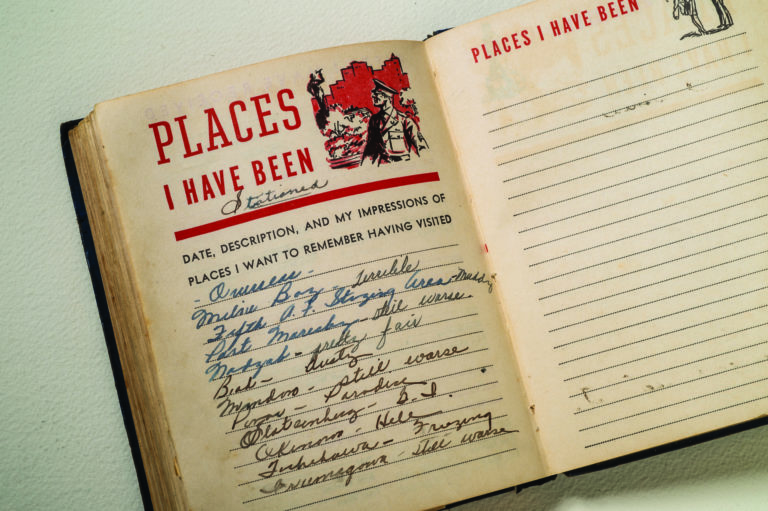 PLACES
I HAVE BEEN
Stationed
DATE, DESCRIPTION, AND MY IMPRESSIONS OF
PLACES I WANT TO REMEMBER HAVING VISITED
- Overseas -
Milne Bay - Terrible
Fifth A.F. Staging Area - Muddy
Port Moresby - still worse.
Nadzab - pretty fair
Biak - Dusty
Mindoro - Still worse
Paradise
G.I.
Okinawa - Hell
Tachikawa - Freezing
Irumagawa - still worse
PLACES I HAVE BEEN